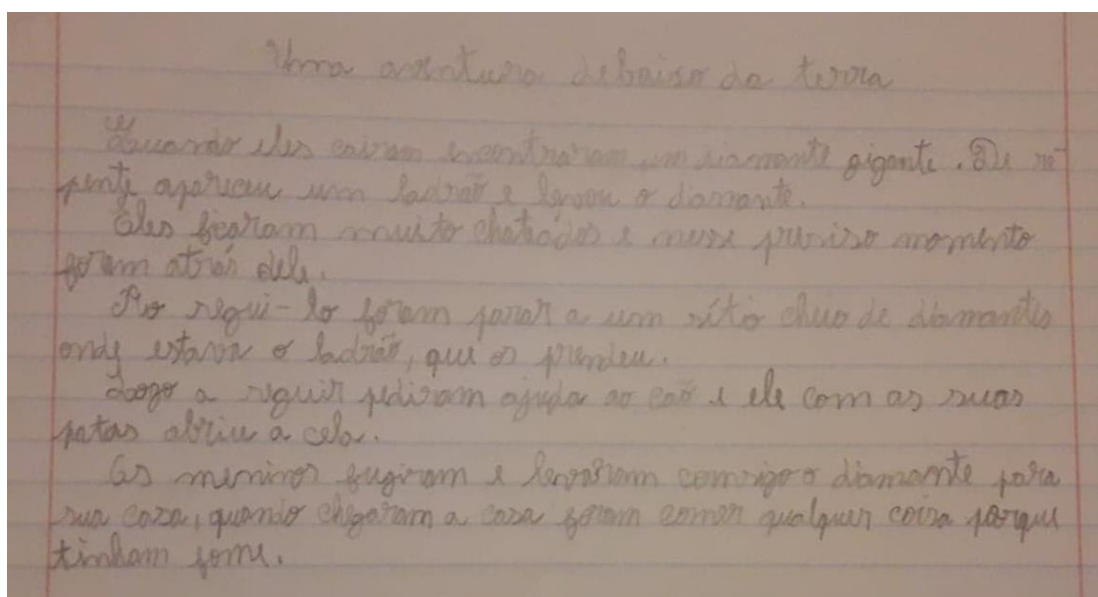 Uma aventura debaixo da terra
Quando eles cairam encontraram um diamante gigante. De re-
pente apareceu um ladrão e levou o diamante.
Eles ficaram muito chateados e nesse preciso momento
foram atrás dele.
Ao segui-lo foram parar a um sítio cheio de diamantes
onde estava o ladrão, que os prendeu.
Logo a seguir pediram ajuda ao cão e ele com as suas
patas abriu a cela.
Os meninos fugiram e levaram comsigo o diamante para
sua casa, quando chegaram a casa foram comer qualquer coisa porque
tinham fome.